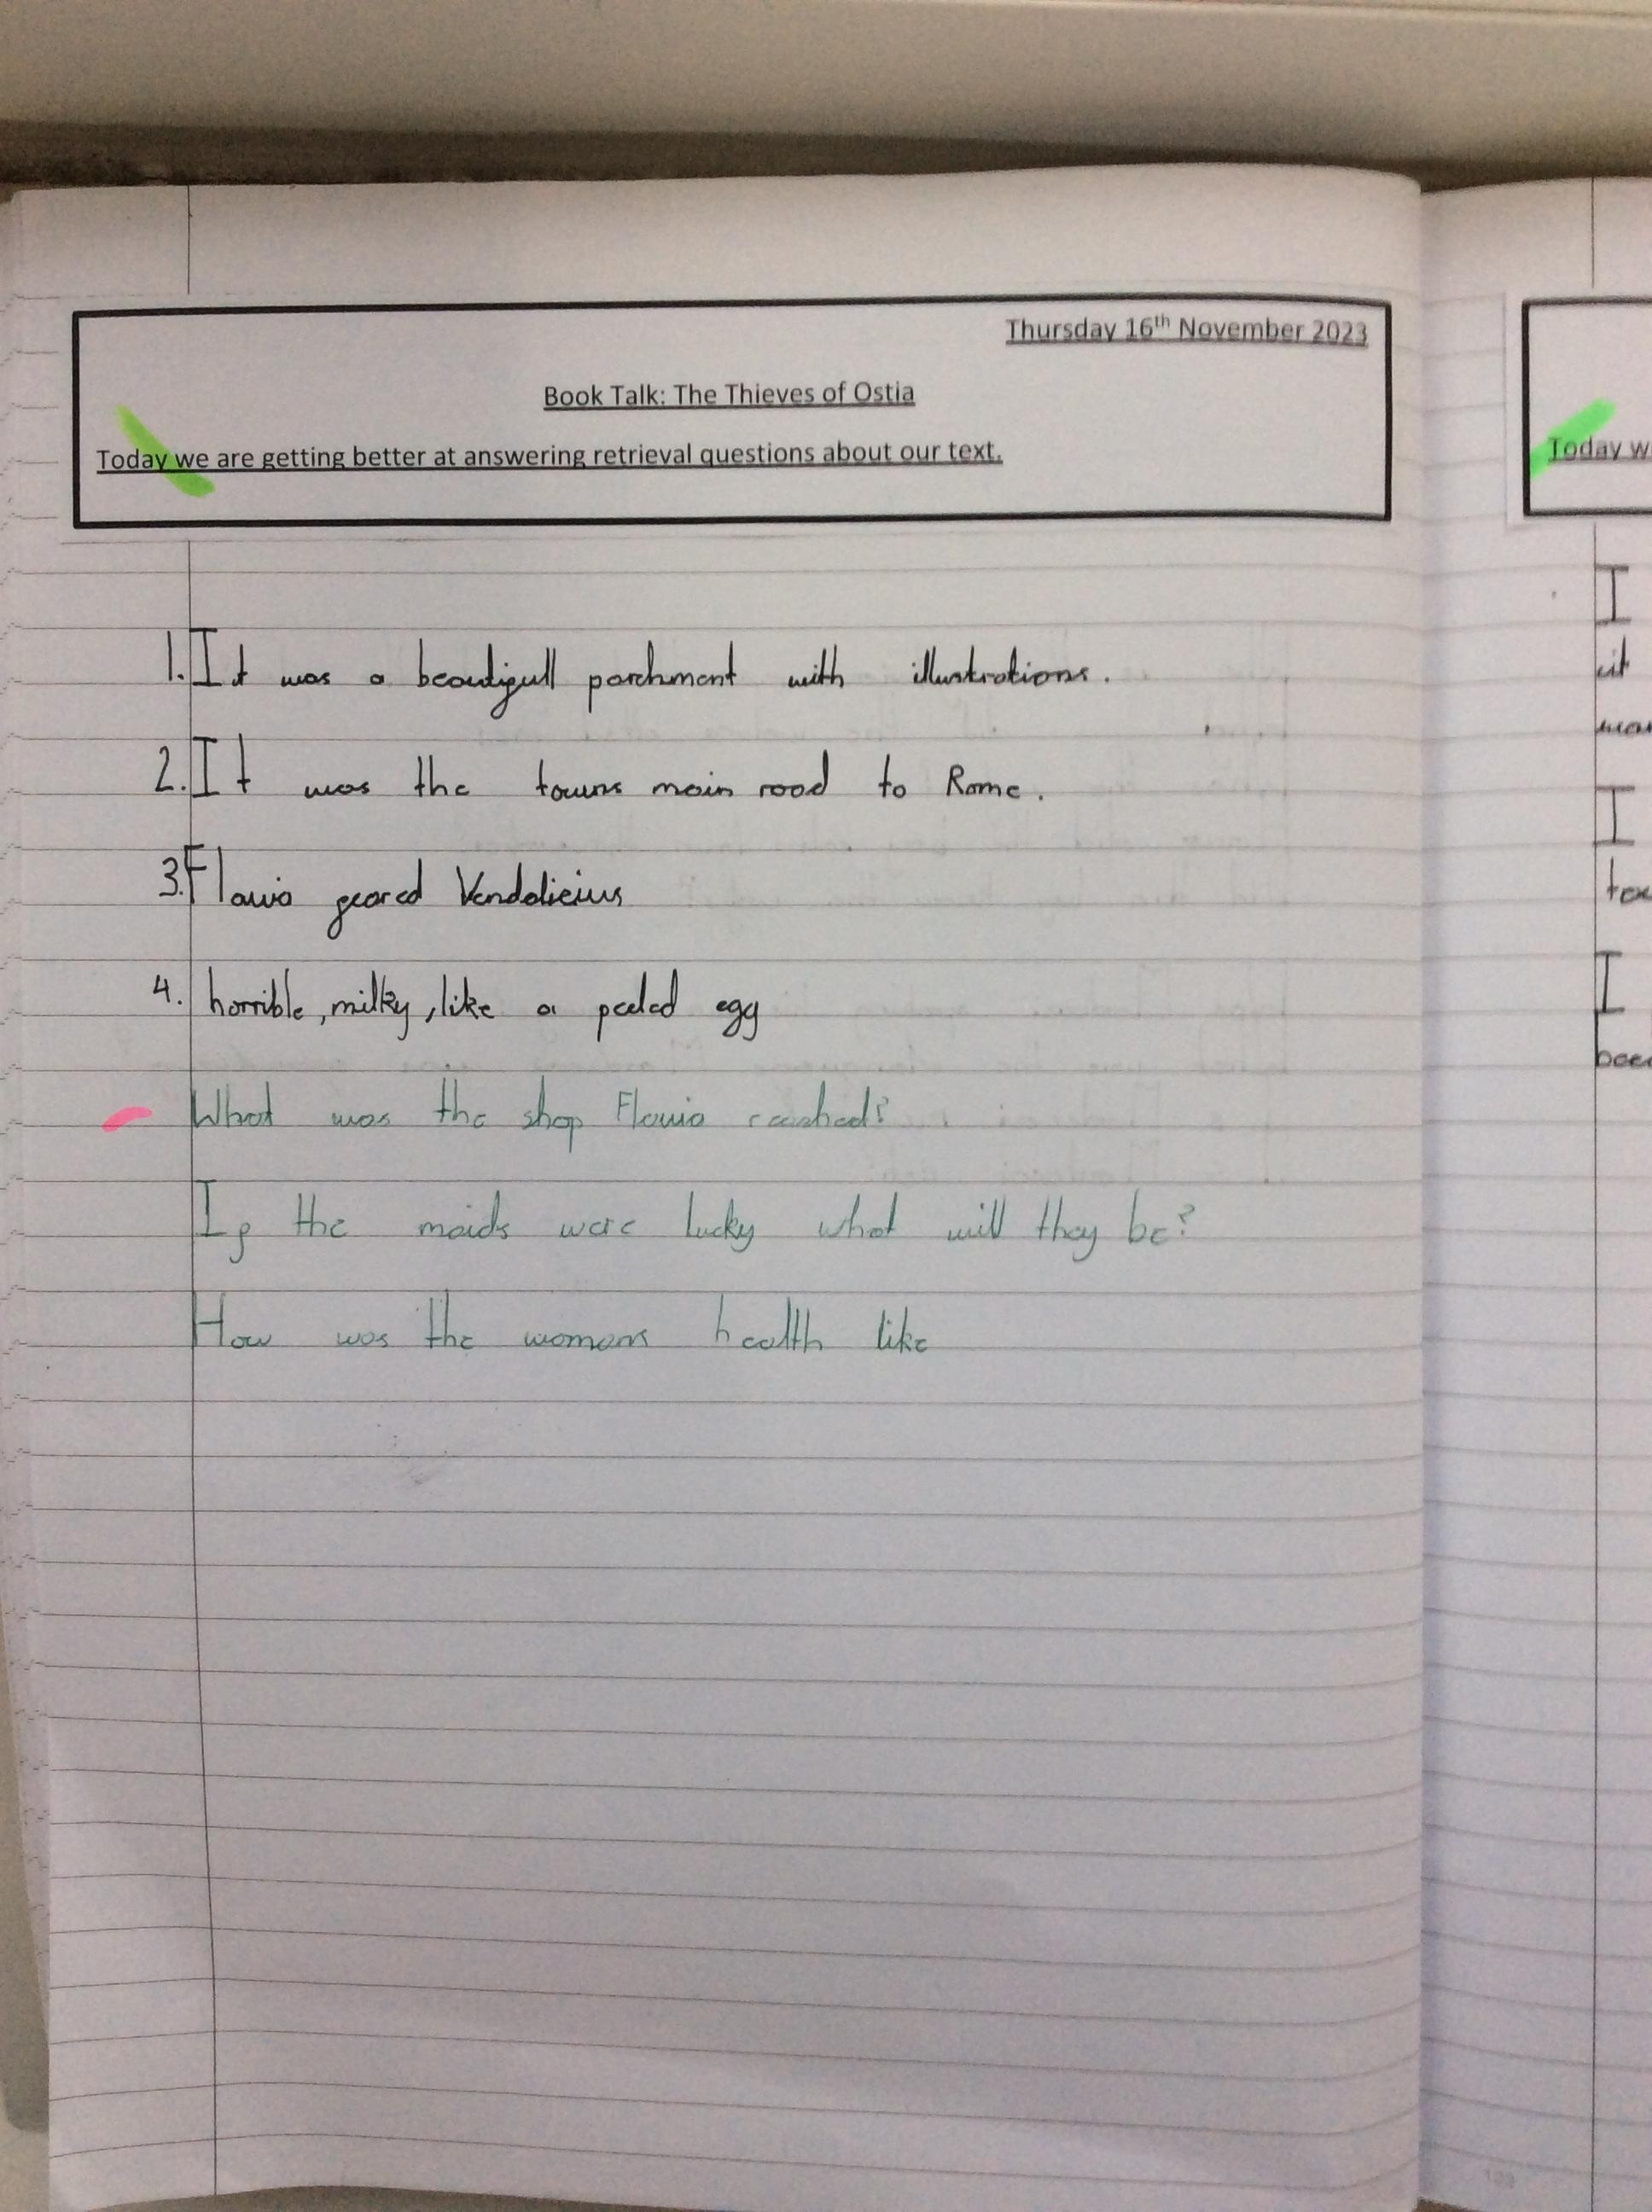 Thursday 16th November 2023
Book Talk: The Thieves of Ostia
Today we are getting better at answering retrieval questions about our text.
1. It was a beautifull parchment with illustrations.
2. It was the towns main road to Rome.
3. Flavia feared Vendalicius
4. horrible, milky, like a peeled egg
What was the shop Flavia reached?
If the maids were lucky what will they be?
How was the womans health like
Today w
I
it
I
I